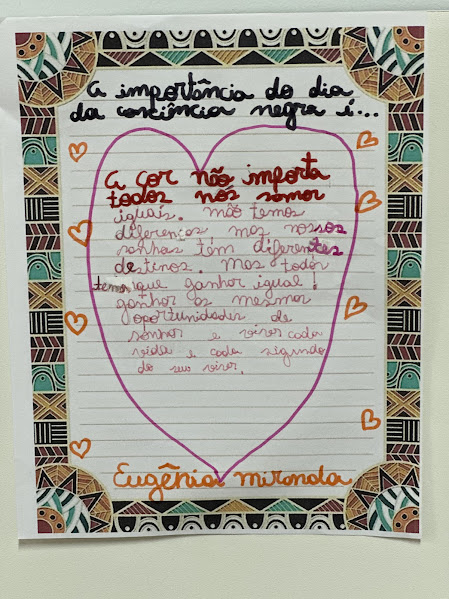 A importância do dia
da conciência negra é...
A cor não importa
todos nós somos
iguais. não temos
diferenças, mas nossos
sonhos têm diferentes
destinos. Mas todos
temos que ganhar igual!
ganhar as mesmas
oportunidades de
sonhar e viver cada
vida e cada segundo
do seu viver.
Eugênia miranda